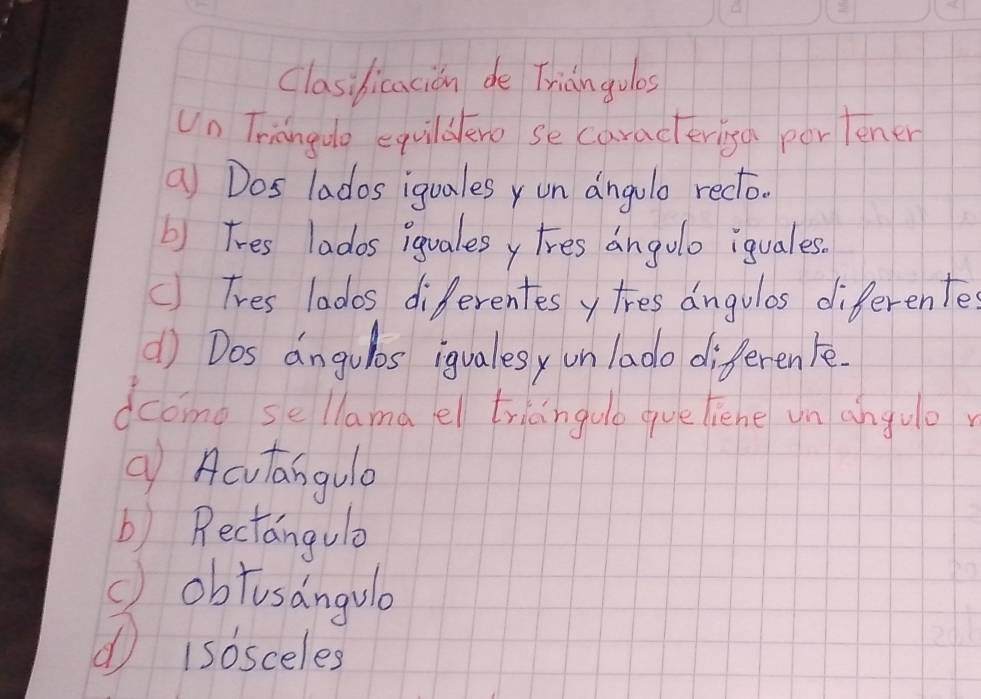 Clasificación de Triángulos
Un Triángulo equilátero se caracteriza por Tener
a) Dos lados iguales y un ángulo recto.
b) Tres lados iguales y Tres ángulo iguales.
c) Tres lados diferentes y tres ángulos diferentes
d) Dos ángulos iguales y un lado diferente.
¿cómo se llama el triángulo que tiene un ángulo r
a) Acutángulo
b) Rectángulo
c) obtusángulo
d) isósceles